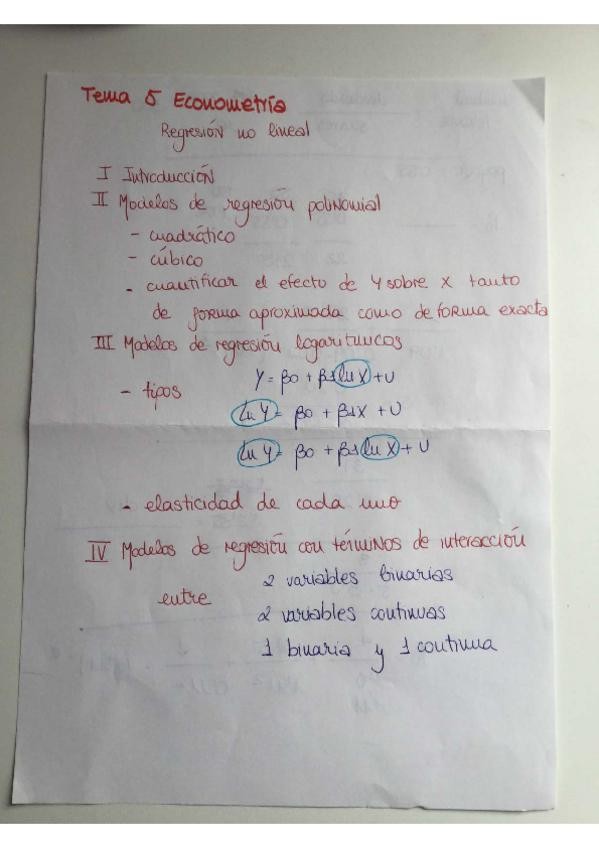 Tema 5 Econometría
Regresión no lineal
I Introducción
II Modelos de regresión polinomial
- cuadrático
- cúbico
- cuantificar el efecto de Y sobre X tanto
de forma aproximada como de forma exacta
III Modelos de regresión logaritmicos
- tipos
Y = β0 + β1 ln X + U
ln Y = β0 + β1X + U
ln Y = β0 + β1 ln X + U
- elasticidad de cada uno
IV Modelos de regresión con términos de interacción
entre
2 variables binarias
2 variables continuas
1 binaria y 1 continua